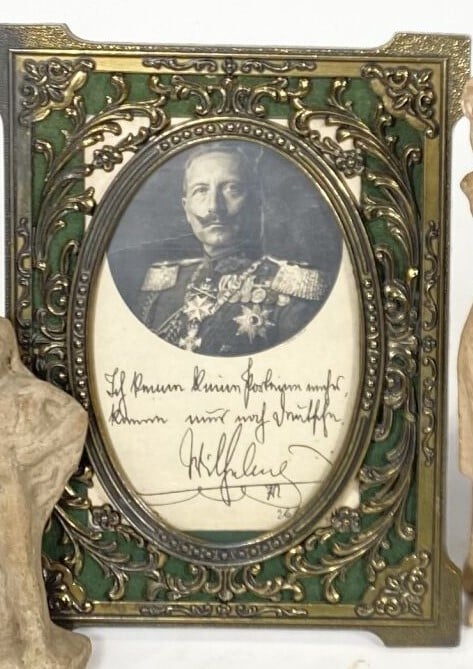 Ich kenne keine Parteyen mehr,
kenne nur noch Deutsche.
Wilhelm